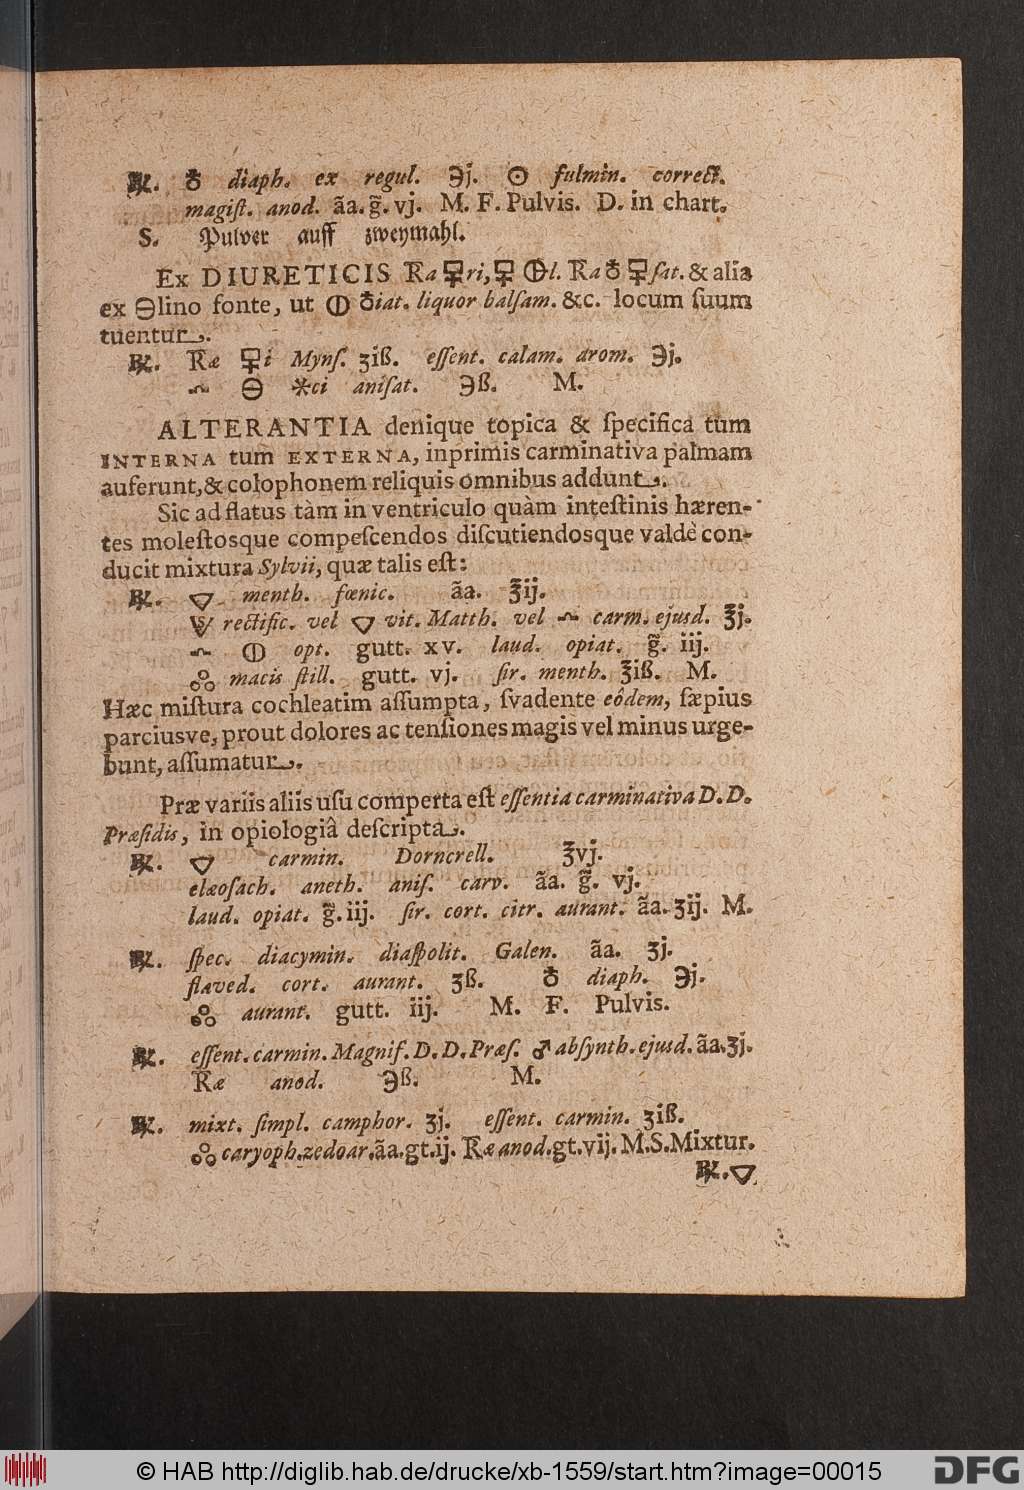 ℞. ♁ diaph. ex regul. ℈j. ☉ fulmin. correct.
magiſt. anod. ãa. g̃. vj. M. F. Pulvis. D. in chart.
S. Pulver auff zweymahl.
Ex DIURETICIS R̄a 🜿ri, 🜿 🜕l. R̄a ♁ 🜿ſat. & alia
ex 🜔lino fonte, ut 🜕 ♁iat. liquor balſam. &c. locum ſuum
tuentur.
℞. R̄æ 🜿i Mynſ. ʒiß. eſſent. calam. arom. ℈j.
🝆 🜔 ✳ci aniſat. ℈ß. M.
ALTERANTIA denique topica & ſpecifica tum
INTERNA tum EXTERNA, inprimis carminativa palmam
auferunt, & colophonem reliquis omnibus addunt.
Sic ad flatus tàm in ventriculo quàm inteſtinis hæren-
tes moleſtosque compeſcendos diſcutiendosque valdè con-
ducit mixtura Sylvii, quæ talis eſt:
℞. 🜄 menth. fœnic. ãa. ℥ij.
🜈 rectific. vel 🜄 vit. Matth. vel 🝆 carm. ejusd. ℥j.
🝆 🜕 opt. gutt. xv. laud. opiat. g̃. iij.
🝆 macis ſtill. gutt. vj. ſir. menth. ℥iß. M.
Hæc miſtura cochleatim aſſumpta, ſvadente eôdem, ſæpius
parciusve, prout dolores ac tenſiones magis vel minus urge-
bunt, aſſumatur.
Præ variis aliis uſu comperta eſt eſſentia carminativa D. D.
Præſidis, in opiologiâ deſcripta.
℞. 🜄 carmin. Dorncrell. ℥vj.
elæoſach. aneth. aniſ. carv. ãa. g̃. vj.
laud. opiat. g̃. iij. ſir. cort. citr. aurant. ãa. ʒij. M.
℞. ſpec. diacymin. diaſpolit. Galen. ãa. ʒj.
flaved. cort. aurant. ʒß. ♁ diaph. ℈j.
🝆 aurant. gutt. iij. M. F. Pulvis.
℞. eſſent. carmin. Magnif. D. D. Præſ. ♂ abſynth. ejusd. ãa. ʒj.
R̄æ anod. ℈ß. M.
℞. mixt. ſimpl. camphor. ʒj. eſſent. carmin. ʒiß.
🝆 caryoph. zedoar. ãa. gt. ij. R̄æ anod. gt. vij. M. S. Mixtur.
℞. 🜄
© HAB http://diglib.hab.de/drucke/xb-1559/start.htm?image=00015
DFG